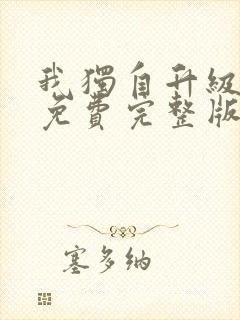 我獨自升級
免費完整版
塞多納